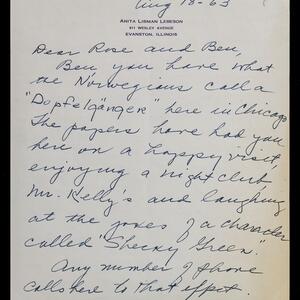 Aug 18-63
ANITA LIBMAN LEBESON
911 WESLEY AVENUE
EVANSTON, ILLINOIS
Dear Rose and Ben,
Ben you have what
the Norwegians call a
"Dopfelgänger" here in Chicago.
The papers have had you
here on a happy visit,
enjoying a night club
Mr. Kelly's and laughing
at the jokes of a character
called "Shecky Green."
Any number of phone
calls here to that effect.